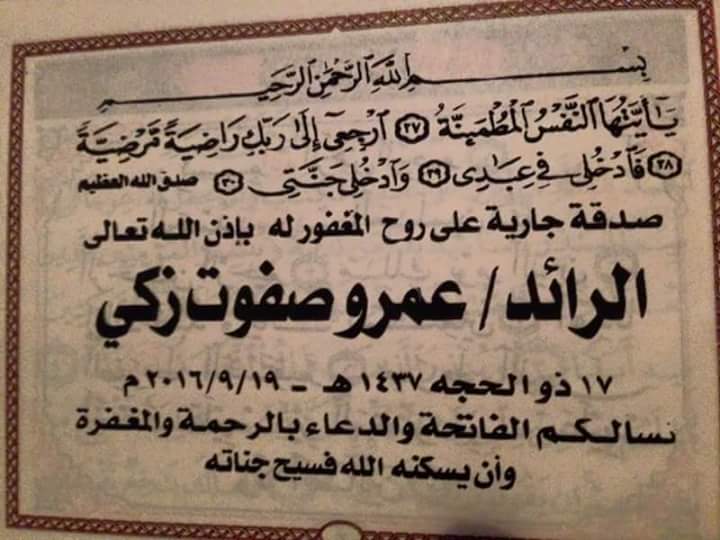 بِسْمِ ٱللَّهِ ٱلرَّحْمَٰنِ ٱلرَّحِيمِ
يَٰٓأَيَّتُهَا ٱلنَّفْسُ ٱلْمُطْمَئِنَّةُ ٢٧ ٱرْجِعِىٓ إِلَىٰ رَبِّكِ رَاضِيَةً مَّرْضِيَّةً
٢٨ فَٱدْخُلِى فِى عِبَٰدِى ٢٩ وَٱدْخُلِى جَنَّتِى ٣٠ صدق الله العظيم
صدقة جارية على روح المغفور له بإذن الله تعالى
الرائد / عمرو صفوت زكي
١٧ ذو الحجه ١٤٣٧ هـ - ٢٠١٦/٩/١٩ م
نسالكم الفاتحة والدعاء بالرحمة والمغفرة
وأن يسكنه الله فسيح جناته